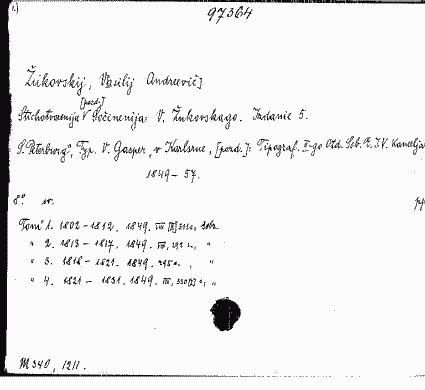 97364
Žukovskij, Vasilij Andreevič]
[pozd.]
Stichotvorenija V Sočinenija: V. Žukovskago. Izdanie 5.
S. Peterburg", Typ. V. Gasper, v Karlsrue, [pozd.]: Tipograf. II-go Otd. Sob. E. I. V. Kanceljar
1849-57.
8°
Tom 1. 1802-1812. 1849. VIII
" 2. 1813-1817. 1849. VIII, 292 s., "
" 3. 1818-1821. 1849. 295 s., "
" 4. 1821-1831. 1849. VIII, "
M 340, 1211.